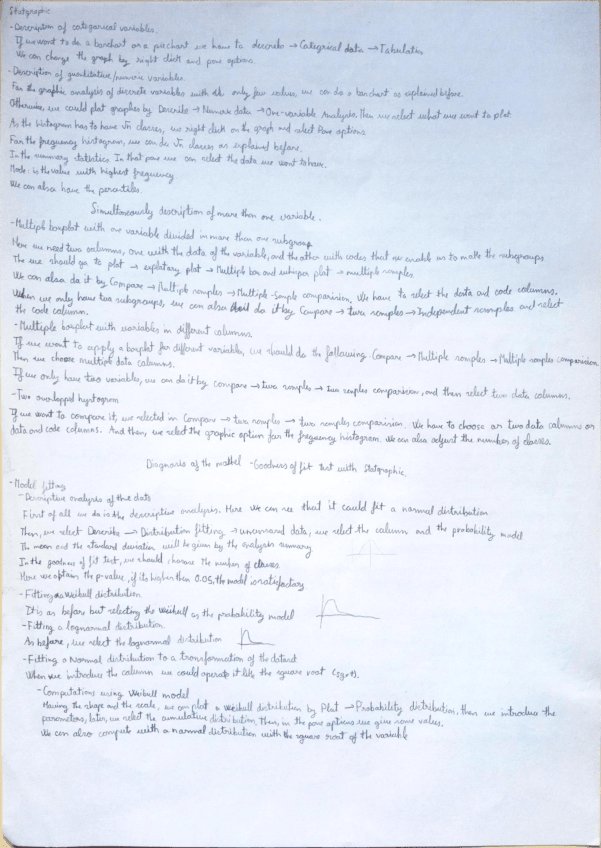 Statgraphic
- Description of categorical variables.
If we want to do a barchart or a piechart we have to describe → Categrical data → Tabulation
We can change the graph by right click and pane options.
- Description of quantitative/numeric variables.
For the graphic analysis of discrete variables with only few values, we can do a barchart as explained before.
Otherwise, we could plot graphes by Describe → Numeric data → One-variable Analysis. Then we select what we want to plot
As the histogram has to have √n classes, we right click on the graph and select Pane options
For the frequency histogram, we can do √n classes as explained before.
In the summary statistics In that pane we can select the data we want to have.
Mode: is the value with highest frequency
We can also have the percentiles.
Simultaneously description of more than one variable.
- Multiple boxplot with one variable divided in more than one subgroup
Here we need two columns, one with the data of the variable, and the other with codes that enable us to make the subgroups.
The we should go to plot → exploratory plot → Multiple box and whisper plot → multiple samples.
We can also do it by Compare → Multiple samples → Multiple-sample comparision. We have to select the data and code columns.
When we only have two subgroups, we can also do it by Compare → two samples → Independent samples and select
the code column.
- Multiple boxplot with variables in different columns.
If we want to apply a boxplot for different variables, we should do the following Compare → Multiple samples → Multiple samples comparision
Then we choose multiple data columns.
If we only have two variables, we can do it by compare → two samples → two samples comparision, and then select two data columns.
- Two overlapped hystogram
If we want to compare it, we selected in Compare → two samples → two samples comparision. We have to choose or two data columns or
data and code columns. And then, we select the graphic option for the frequency histogram. We can also adjust the number of classes.
Diagnosis of the model - Goodness of fit test with Statgraphic.
- Model fitting
- Descriptive analysis of the data
First of all we do is the descriptive analysis. Here we can see that it could fit a normal distribution
Then, we select Describe → Distribution fitting → uncensored data, we select the column and the probability model
The mean and the standard deviation will be given by the analysis summary
In the goodness of fit test, we should choose the number of classes.
Here we obtain the p-value, if its higher than 0.05, the model is satisfactory
- Fitting a Weibull distribution.
It is as before but selecting the weibull as the probability model
- Fitting a lognarmal distribution.
As before, we select the lognarmal distribution
- Fitting a Normal distribution to a transformation of the dataset
When we introduce the column we could operate it like the square root (sqrt).
- Computations using Weibull model
Having the shape and the scale, we can plot a weibull distribution by Plot → Probability distribution, then we introduce the
parameters, later, we select the cumulative distribution, then, in the pane options we give some values.
We can also compute with a normal distribution with the square root of the variable